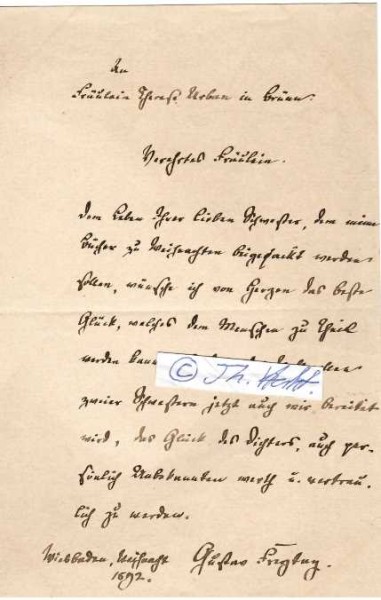 An
Fräulein Therese Urban in Brünn.
Verehrtes Fräulein.
Dem Leben Ihrer lieben Schwester, dem meine
Bücher zu Weihnachten beigepackt werden
sollen, wünsche ich von Herzen das beste
Glück, welches dem Menschen zu Theil
werden kann
© Th.
zweier Schwestern jetzt auch mir bereitet
wird, das Glück des Dichters, auch per-
sönlich Unbekannten werth u. vertrau-
lich zu werden.
Wiesbaden, Weihnacht Gustav Freytag.
1892.